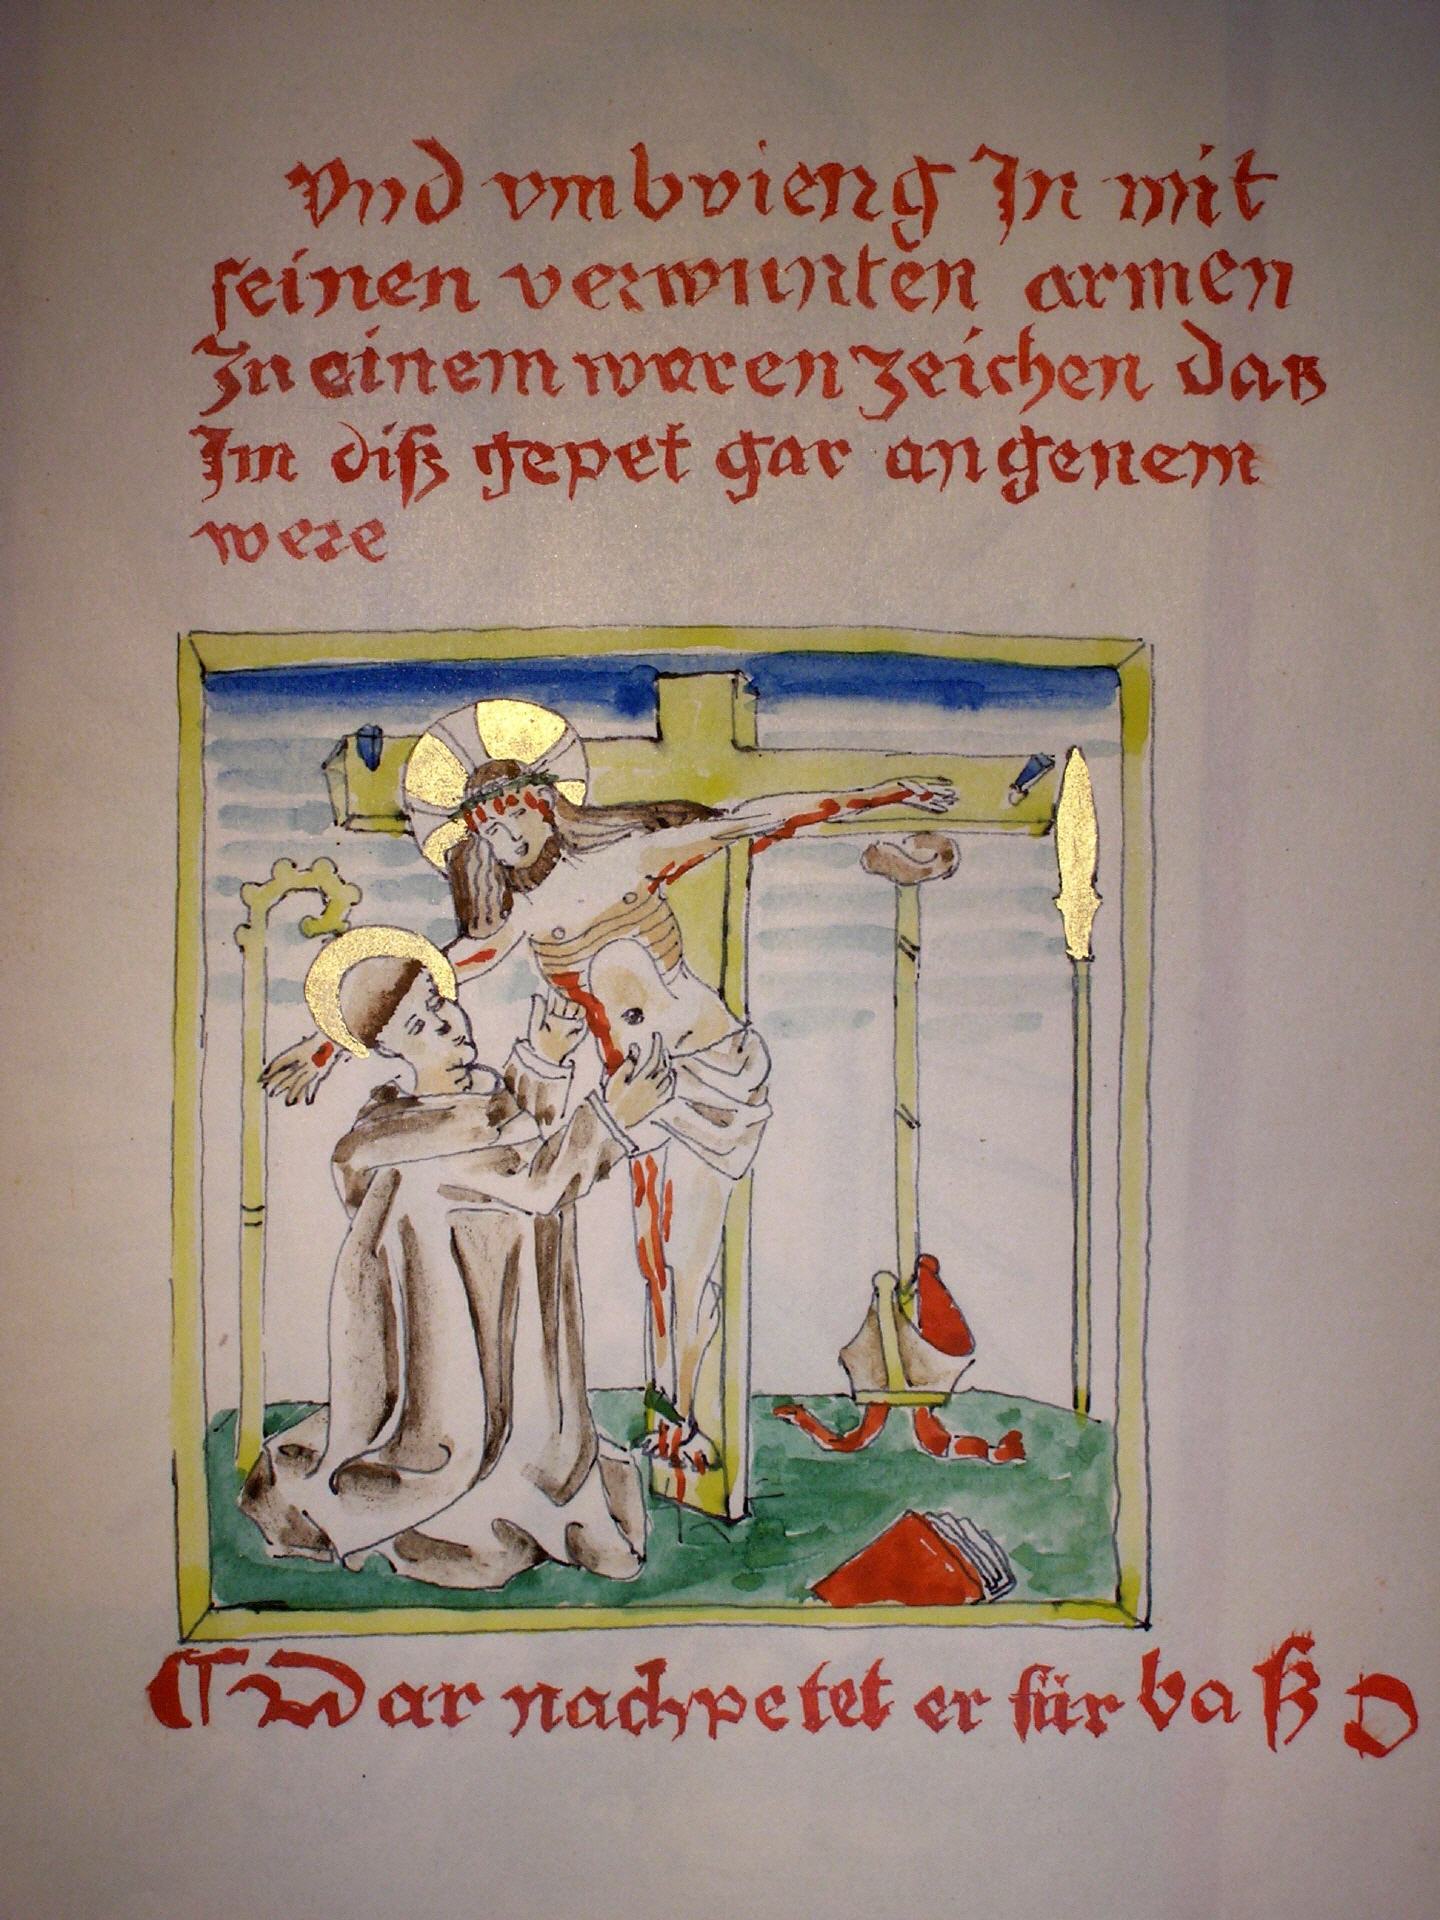 Vnd vmbvieng In mit
seinen verwunten armen
Zu einem waren zeichen daß
Im diß gepet gar angenem
were
¶ Dar nach petet er für baß D